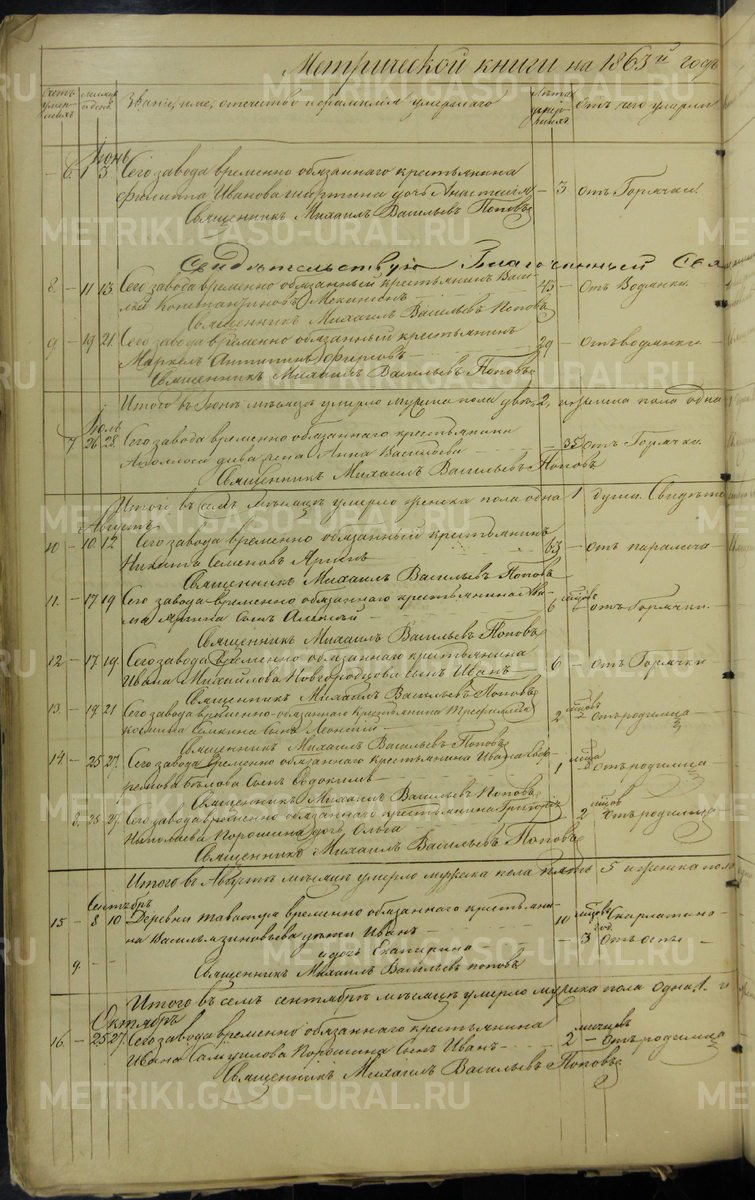 Метрической книги на 1863й годъ
Счетъ умершихъ
Званіе, имя, отечество и фамилія умершаго
Лѣта умершихъ
отъ чего умерли
Іюнь
6. 1 3 Сего завода временно обязаннаго крестьянина
Филиппа Иванова дочь Анастасія — 3 отъ Горячки.
Священникъ Михаилъ Васильевъ Поповъ
Свидѣтельствую Благочинный
8. — 11 13 Сего завода временно обязанный крестьянинъ Васи-
лій Константиновъ — отъ Водянки.
Священникъ Михаилъ Васильевъ Поповъ
9 — 19 21 Сего завода временно обязанный крестьянинъ
Маркелъ Антипинъ Фирсовъ 29 — отъ водянки.
Священникъ Михаилъ Васильевъ Поповъ
Итого въ Іюнѣ мѣсяцѣ умерло мужеска пола два 2, женска пола одна
Іюль
7 26 28 Сего завода временно обязаннаго крестьянина
Анна Васильева — 35 отъ Горячки
Священникъ Михаилъ Васильевъ Поповъ
Итого въ семъ мѣсяцѣ умерло женска пола одна 1 душа.
Августъ
10 — 10 12 Сего завода временно обязанный крестьянинъ
Никита Семеновъ 63 — отъ паралича
Священникъ Михаилъ Васильевъ Поповъ
11. — 17 19 Сего завода временно обязаннаго крестьянина
сынъ Алексѣй 6 мѣсяцовъ отъ Горячки.
Священникъ Михаилъ Васильевъ Поповъ
12 — 17 19. Сего завода временно обязаннаго крестьянина
Ивана Михайлова Новгородцова сынъ Иванъ 6 — отъ Горячки
Священникъ Михаилъ Васильевъ Поповъ
13. — 19 21 Сего завода временно-обязаннаго крестьянина
сынъ Леонтій 2 мѣсяцовъ отъ родимца
Священникъ Михаилъ Васильевъ Поповъ
14 — 25 27. Сего завода временно обязаннаго крестьянина Ивана Еф-
ремова Бѣлова сынъ Евдокимъ 1 мѣсяца отъ родимца
Священникъ Михаилъ Васильевъ Поповъ
8. 25 27 Сего завода временно обязаннаго крестьянина Григорія
Николаева Порошина дочь Ольга 2 мѣсяцов отъ родимца
Священникъ Михаилъ Васильевъ Поповъ
Итого въ Августѣ мѣсяцѣ умерло мужеска пола пять 5 и женска пола
Сентябрь
15 — 8 10 Деревни временно обязаннаго крестьяни-
на Василья Зиновьева дѣти Иванъ 10 мѣсяцовъ скарлатина
9. — и дочь Екатерина — 3 год. отъ оспы
Священникъ Михаилъ Васильевъ Поповъ
Итого въ семъ сентябрѣ мѣсяцѣ умерло мужска пола одна 1. и
Октябрь
16. — 25 27. Сего завода временно обязаннаго крестьянина
Ивана Самуилова Порошина сынъ Иванъ 2 мѣсяцовъ отъ родимца
Священникъ Михаилъ Васильевъ Поповъ
METRIKI.GASO-URAL.RU